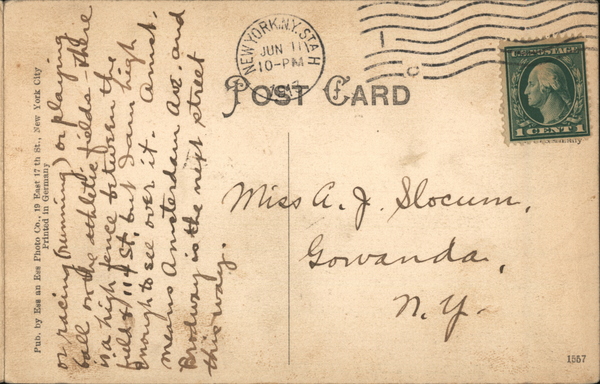 NEW YORK, N.Y. STA H
JUN 11
10-PM
POST CARD
U.S. POSTAGE
1 CENT 1
Germany
Pub. by Ess an Ess Photo Co., 19 East 17th St., New York City
Printed in Germany
or racing (running) or playing
ball on the athletic fields - there
is a high fence between the
field & 117 St. but I am high
enough to see over it. Amst.
means Amsterdam Ave. and
Brodway is the next street
this way.
Miss A. J. Slocum,
Gowanda,
N.Y.
1557